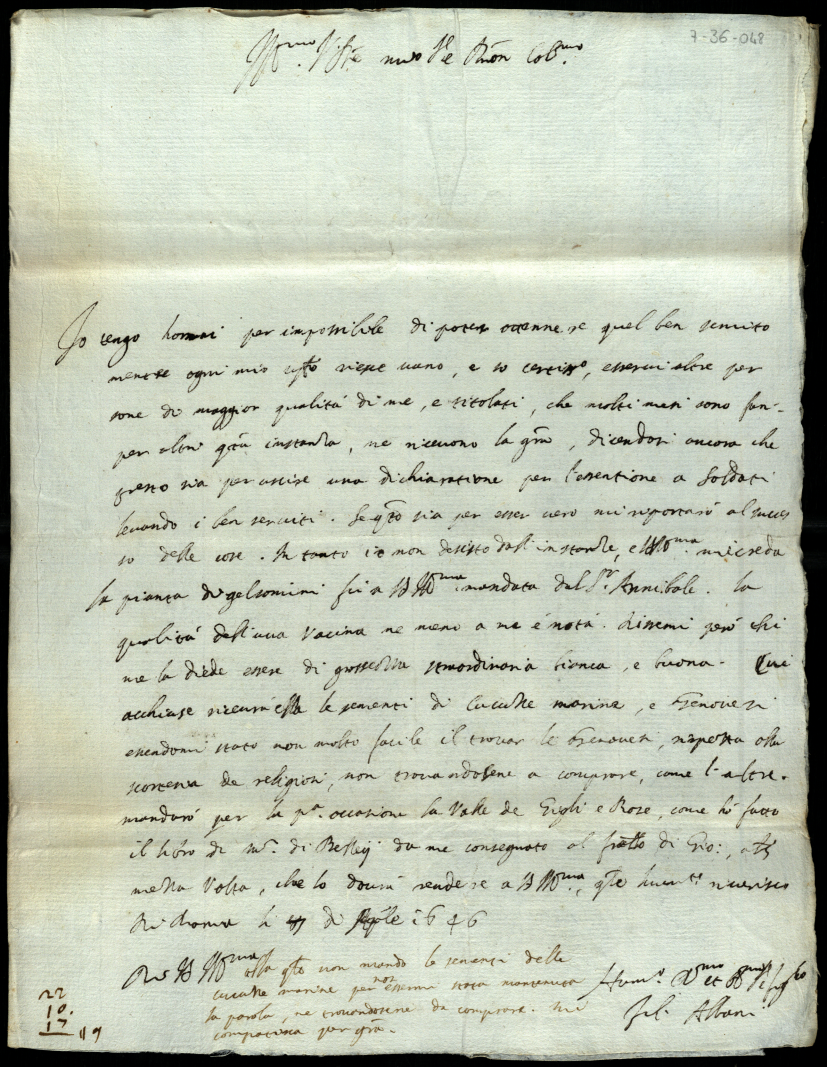 7-36-048
Ill.mo Sig.re mio Sig.re e Pron Col.mo
Io tengo homai per impossibile di poter ottennere quel ben servito
mentre ogni mio riesce vano, e so certiss.o, esservi altre per
sone di maggior qualità di me, e titolati, che molti mesi sono fan-
per altri instanza, ne ricevono la gra, dicendosi ancora che
presto sia per uscire una dichiaratione per l'essentione a soldati
levando i ben serviti. Se q.to sia per esser vero mi riportarò al succes
so delle cose. In tanto io non desisto dall'instanze, e V.S. Ill.ma mi creda
la pianta di gelsomini fu a V.S. Ill.ma mandata dal S.r Annibale. La
qualità dell'uva Vaccina ne meno a me é nota. dissemi però chi
me la diede essere di grossezza straordinaria bianca, e buona. Qui
acchiuse riceurà ella le sementi di Cucuzze marine, e Genovesi
essendomi stato non molto facile il trovar le Genovesi, rispetto alla
de religiosi, non trovandosene a comprare, come l'altre.
mandarò per la p.a occasione la Valle de Gigli e Rose, come hò fatto
il libro di di da me consegnato al di Gio:,
Volta, che lo dourà rendere a V.S. Ill.ma, q.le hum.te riverisco
Di Roma li di Aple 1646
Di V.S. Ill.ma
alla q.le non mando le sementi delle
cucuzze marine per non essermi stata mantenuta
la parola, ne trovandosene da comprare. mi
compatisca per gra.
Hum.o D.mo et Obb.mo
Fil. Albani
22
10.
17
49